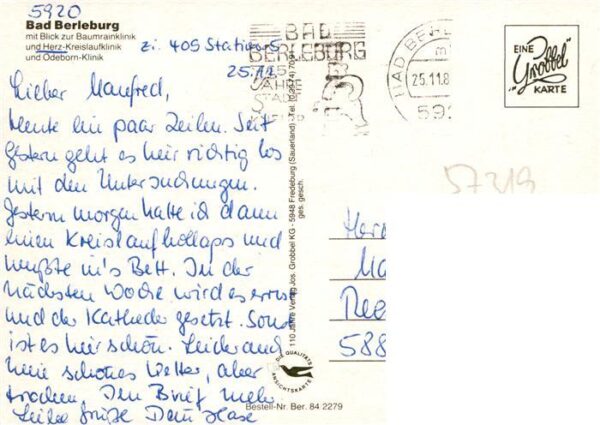 5920
Bad Berleburg
mit Blick zur Baumrainklinik
und Herz-Kreislaufklinik
und Odeborn-Klinik
Zi. 405 Station 5
25.11.
Lieber Manfred,
Heute ein paar Zeilen. Seit
gestern geht es hier richtig los
mit den Untersuchungen.
Gestern morgen hatte ich dann
einen Kreislaufkollaps und
mußte in's Bett. In der
nächsten Woche wird es ernst
und der Katheder gesetzt. Sonst
ist es hier schön. Leider auch
kein schönes Wetter, aber
trocken. Den Brief mehr.
Liebe Grüße Dein Hase
BAD
BERLEBURG
JAHRE
STADT
BAD BERLE
25.11.8
592
EINE
"Grobbel"
KARTE
57319
110 Jahre Verlag Jos. Grobbel KG - 5948 Fredeburg (Sauerland) - Tel. (0 29 74) 70
ges. gesch.
Herr
Ma
588
DIE QUALITÄTS
ANSICHTSKARTE
Bestell-Nr. Ber. 84 2279